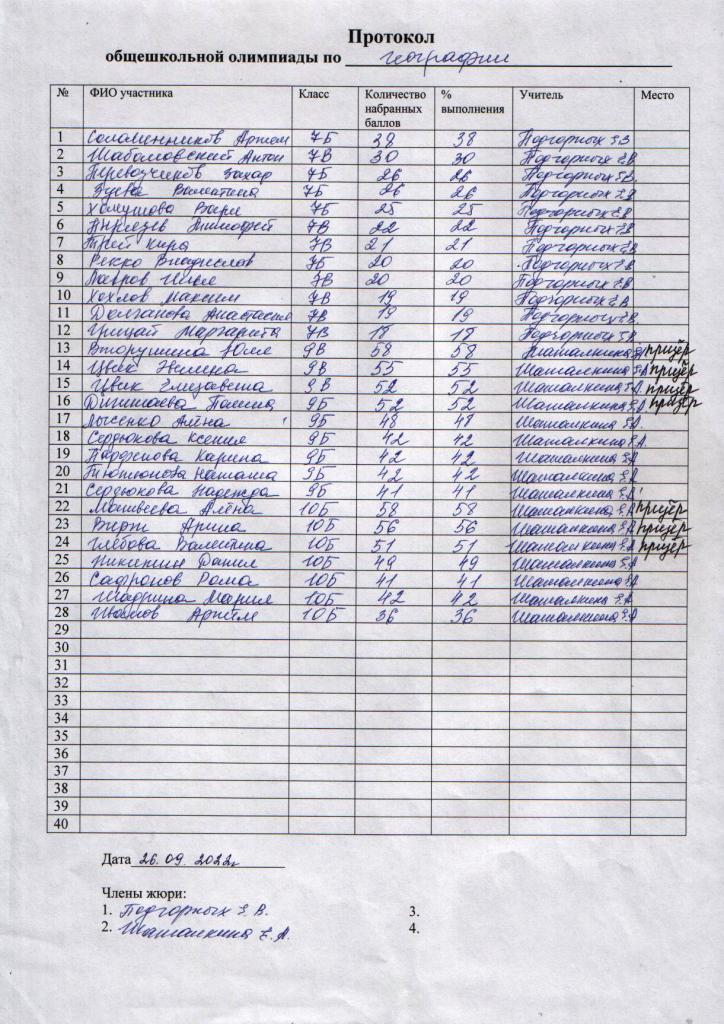 Протокол
общешкольной олимпиады по географии
№ ФИО участника Класс Количество набранных баллов % выполнения Учитель Место
1 Соломенников Артем 7Б 38 38 Подгорных Е.В
2 Шаболовский Антон 7В 30 30 Подгорных Е.В
3 Перевозчиков Захар 7Б 26 26 Подгорных Е.В
4 Зуева Валентина 7Б 26 26 Подгорных Е.В
5 Хомутова Варя 7Б 25 25 Подгорных Е.В
6 Князев Тимофей 7В 22 22 Подгорных Е.В
7 Трей Кира 7В 21 21 Подгорных Е.В
8 Рекко Владислав 7Б 20 20 Подгорных Е.В
9 Лавров Илья 7В 20 20 Подгорных Е.В
10 Хохлов Максим 7В 19 19 Подгорных Е.В
11 Долганова Анастасия 7В 19 19 Подгорных Е.В
12 Грицай Маргарита 7В 18 18 Подгорных Е.В
13 Вторушина Юля 9В 58 58 Шаталкина Е.А призёр
14 Цвик Эвелина 9В 55 55 Шаталкина Е.А призёр
15 Цвик Елизавета 9В 52 52 Шаталкина Е.А призёр
16 Полина 9Б 52 52 Шаталкина Е.А призёр
17 Лысенко Алёна 9Б 48 48 Шаталкина Е.А.
18 Сердюкова Ксения 9Б 42 42 Шаталкина Е.А.
19 Карина 9Б 42 42 Шаталкина Е.А
20 Наташа 9Б 42 42 Шаталкина Е.А
21 Сердюкова Надежда 9Б 41 41 Шаталкина Е.А
22 Матвеева Алёна 10Б 58 58 Шаталкина Е.А призёр
23 Вирт Арина 10Б 56 56 Шаталкина Е.А призёр
24 Глебова Валентина 10Б 51 51 Шаталкина Е.А призёр
25 Никитин Данил 10Б 49 49 Шаталкина Е.А
26 Сафронов Рома 10Б 41 41 Шаталкина Е.А
27 Шадрина Мария 10Б 42 42 Шаталкина Е.А
28 Иванов Артём 10Б 36 36 Шаталкина Е.А
29
30
31
32
33
34
35
36
37
38
39
40
Дата 26.09.2022г
Члены жюри:
1. Подгорных Е.В. 3.
2. Шаталкина Е.А. 4.